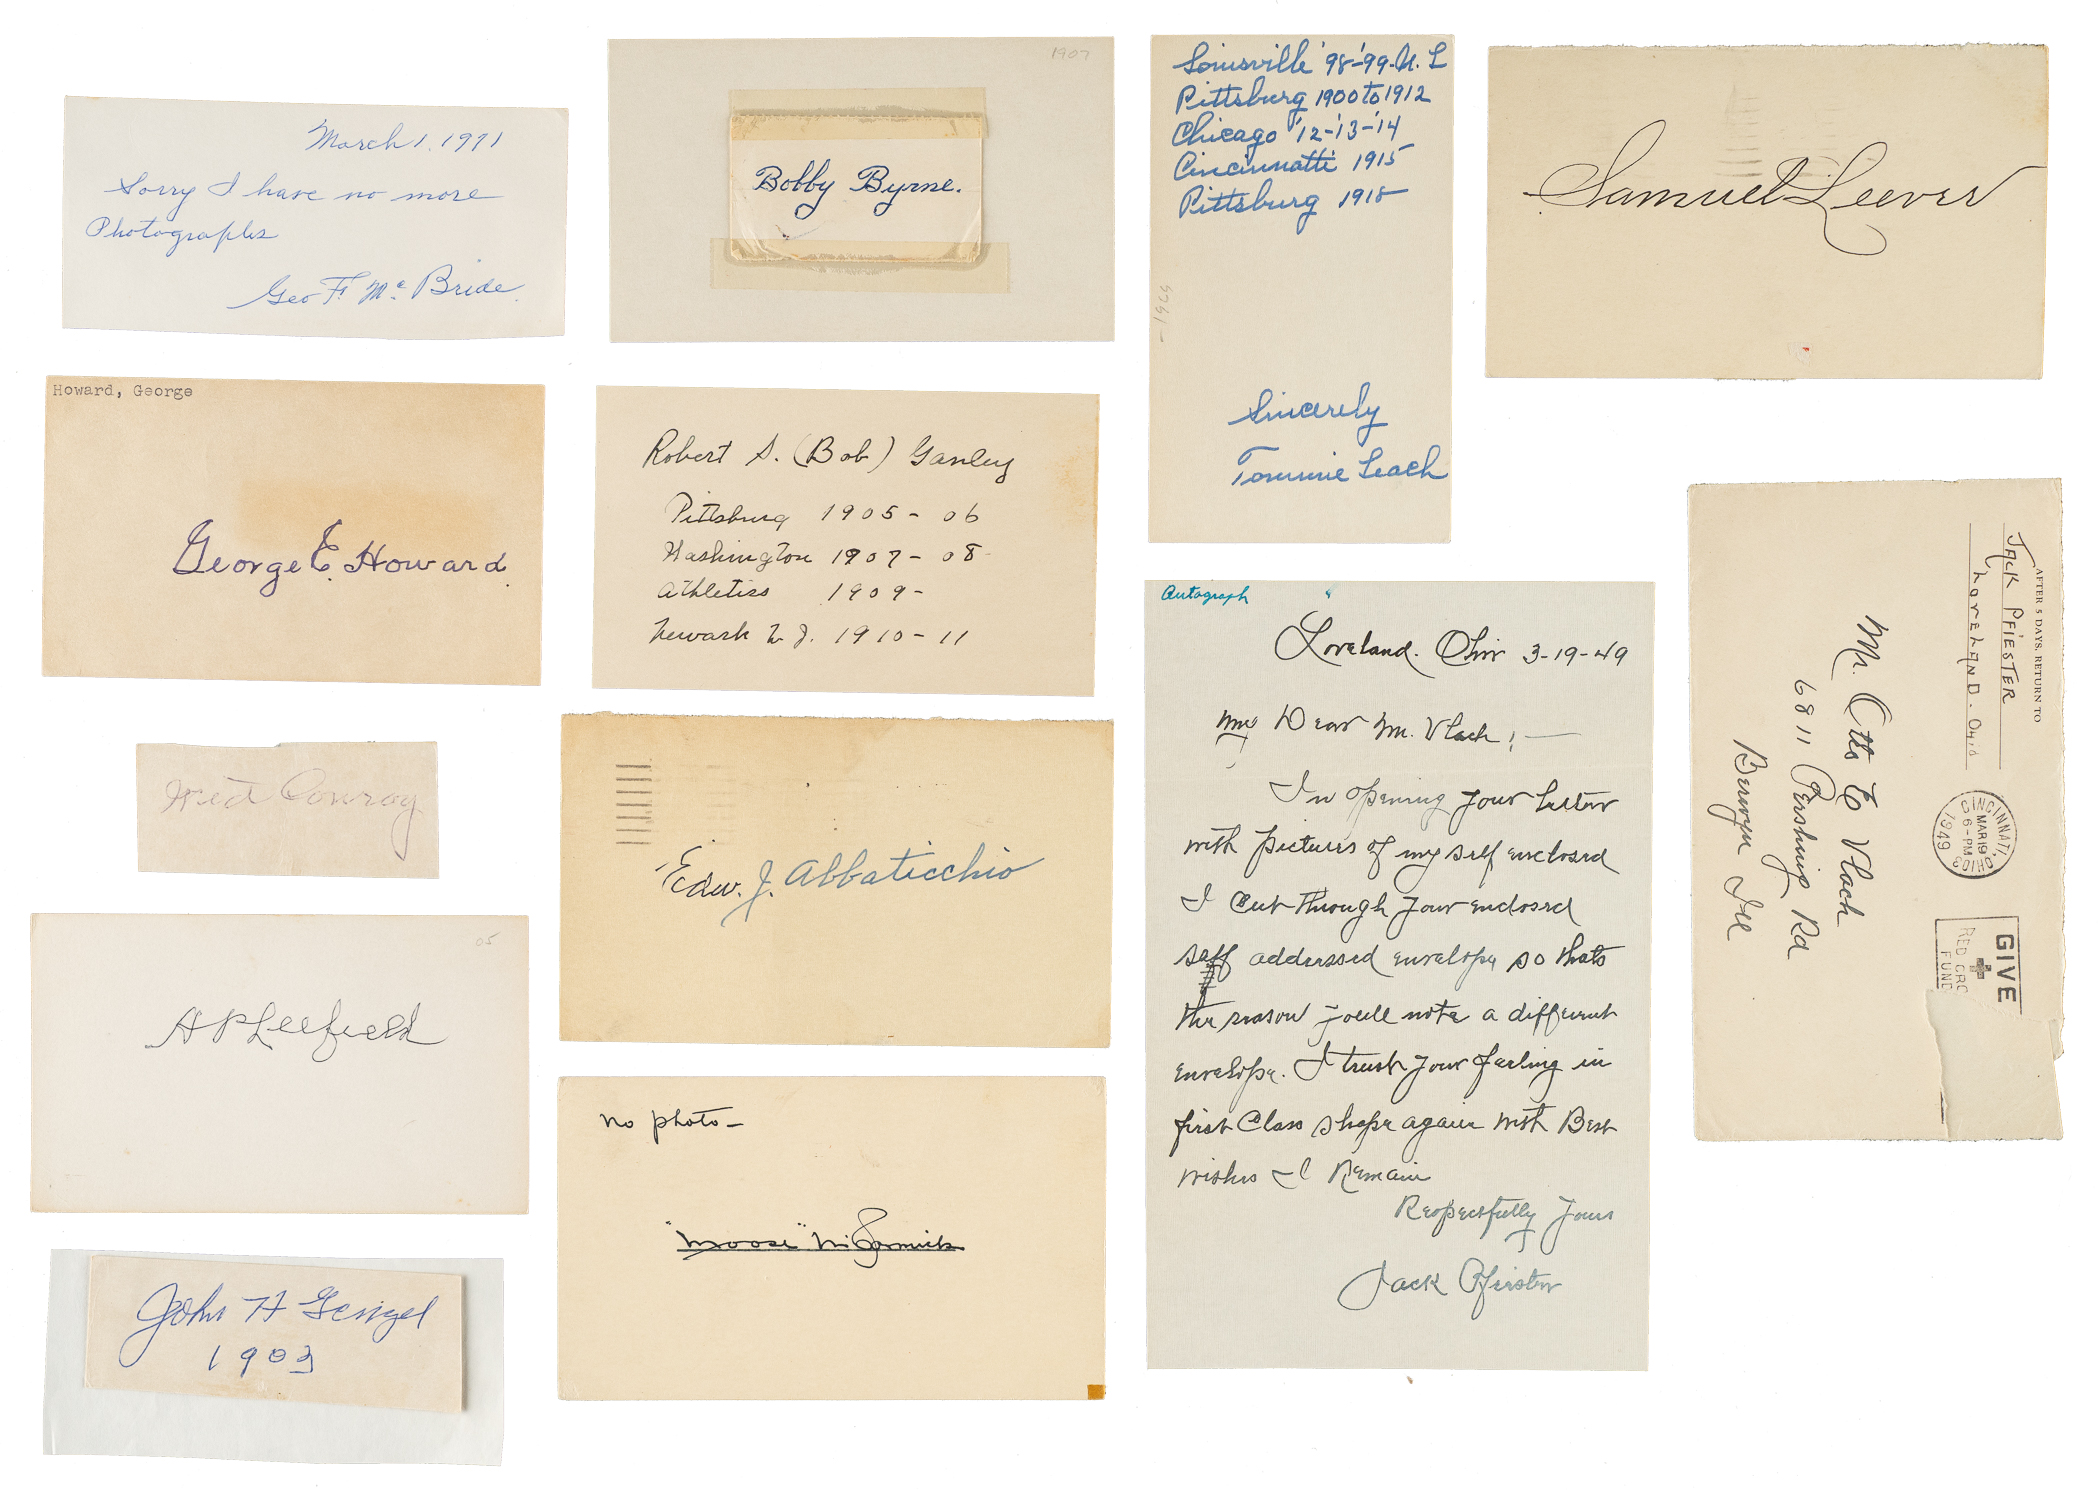 March 1. 1971
Sorry I have no more
Photographs
Geo F. Mc Bride.
Howard, George
George E. Howard
Wid Conroy
05
A P Leefield
John H Gengel
1903
1907
Bobby Byrne.
Robert S. (Bob) Ganley
Pittsburg 1905 - 06
Washington 1907 - 08
Athletiss 1909 -
Newark N J. 1910 - 11
Edw. J. Abbaticchio
No photo -
"Moose" McCormick
Louisville '98-'99-N. L
Pittsburg 1900 to 1912
Chicago '12-'13-'14
Cincinnatti 1915
Pittsburg 1918
Sincerely
Tommie Leach
Autograph
Loveland. Ohio 3-19-49
My Dear Mr. Vlach; -
In opening your letter
with pictures of my self enclosed
I cut through your enclosed
self addressed envelope so thats
the reason youll note a different
envelope. I trust your feeling in
first Class shape again with Best
wishes I Remain
Respectfully Yours
Jack Pfiester
Samuel Leever
AFTER 5 DAYS, RETURN TO
JACK PFIESTER
LOVELAND. OHIO
CINCINNATI, OHIO 3
MAR 19
6-PM
1949
GIVE
RED CRO
FUND
Mr. Otto E Vlach
6811 Pershing Rd
Berwyn Ill